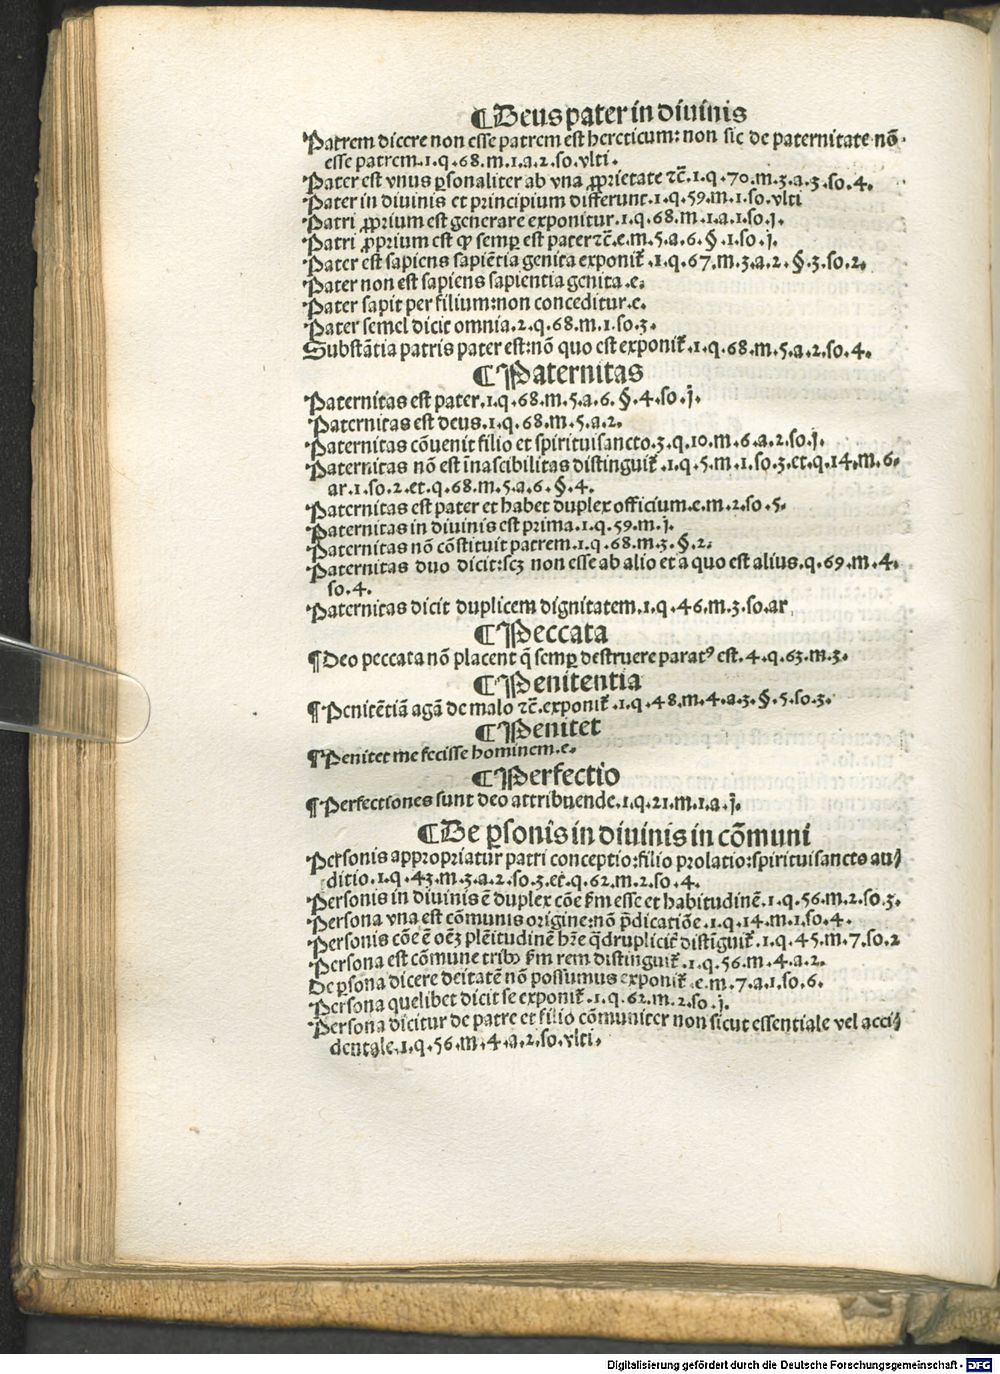 ¶Deus pater in diuinis
Patrem dicere non esse patrem est hereticum: non sic de paternitate nō
esse patrem.1.q.68.m.1.a.2.so.vlti.
Pater est vnus ꝑsonaliter ab vna ꝓprietate ⁊c̄.1.q.70.m.3.a.3.so.4.
Pater in diuinis et principium differunt.1.q.59.m.1.so.vlti
Patri ꝓprium est generare exponitur.1.q.68.m.1.a.1.so.j.
Patri ꝓprium est ꝙ semꝑ est pater⁊c̄.e.m.5.a.6.§.1.so.j.
Pater est sapiens sapiētia genita exponit᷑.1.q.67.m.3.a.2.§.3.so.2.
Pater non est sapiens sapientia genita.e.
Pater sapit per filium:non conceditur.e.
Pater semel dicit omnia.2.q.68.m.1.so.3.
Substātia patris pater est:nō quo est exponit᷑.1.q.68.m.5.a.2.so.4.
¶Paternitas
Paternitas est pater.1.q.68.m.5.a.6.§.4.so.j.
Paternitas est deus.1.q.68.m.5.a.2.
Paternitas cōuenit filio et spirituisancto.3.q.10.m.6.a.2.so.j.
Paternitas nō est īnascibilitas distinguit᷑.1.q.5.m.1.so.3.et.q.14.m.6.
ar.1.so.2.et.q.68.m.5.a.6.§.4.
Paternitas est pater et habet duplex officium.e.m.2.so.5.
Paternitas in diuinis est prima.1.q.59.m.j.
Paternitas nō cōstituit patrem.1.q.68.m.3.§.2.
Paternitas duo dicit:scꝫ non esse ab alio et a quo est alius.q.69.m.4.
so.4.
Paternitas dicit duplicem dignitatem.1.q.46.m.3.so.ar
¶Peccata
¶Deo peccata nō placent q̄ semꝑ destruere paratꝰ est.4.q.63.m.3.
¶Penitentia
¶Penitētiā agā de malo ⁊c̄.exponit᷑.1.q.48.m.4.a.3.§.5.so.3.
¶Penitet
¶Penitet me fecisse hominem.e.
¶Perfectio
¶Perfectiones sunt deo attribuende.1.q.21.m.1.a.j.
¶De ꝑsonis in diuinis in cōmuni
Personis appropriatur patri conceptio:filio prolatio:spirituisancto au⸗
ditio.1.q.43.m.3.a.2.so.3.et.q.62.m.2.so.4.
Personis in diuinis ē duplex cōe ẜm esse et habitudinē.1.q.56.m.2.so.3.
Persona vna est cōmunis origine:nō p̄dicatiōe.1.q.14.m.1.so.4.
Personis cōe ē oēꝫ plēitudinē hr̄e q̄druplicit᷑ distīguit᷑.1.q.45.m.7.so.2
Persona est cōmune tribꝰ ẜm rem distinguit᷑.1.q.56.m.4.a.2.
De ꝑsona dicere deitatē nō possumus exponit᷑.e.m.7.a.1.so.6.
Persona quelibet dicit se exponit᷑.1.q.62.m.2.so.j.
Persona dicitur de patre et filio cōmuniter non sicut essentiale vel acci⸗
dentale.1.q.56.m.4.a.2.so.vlti.
Digitalisierung gefördert durch die Deutsche Forschungsgemeinschaft - DFG